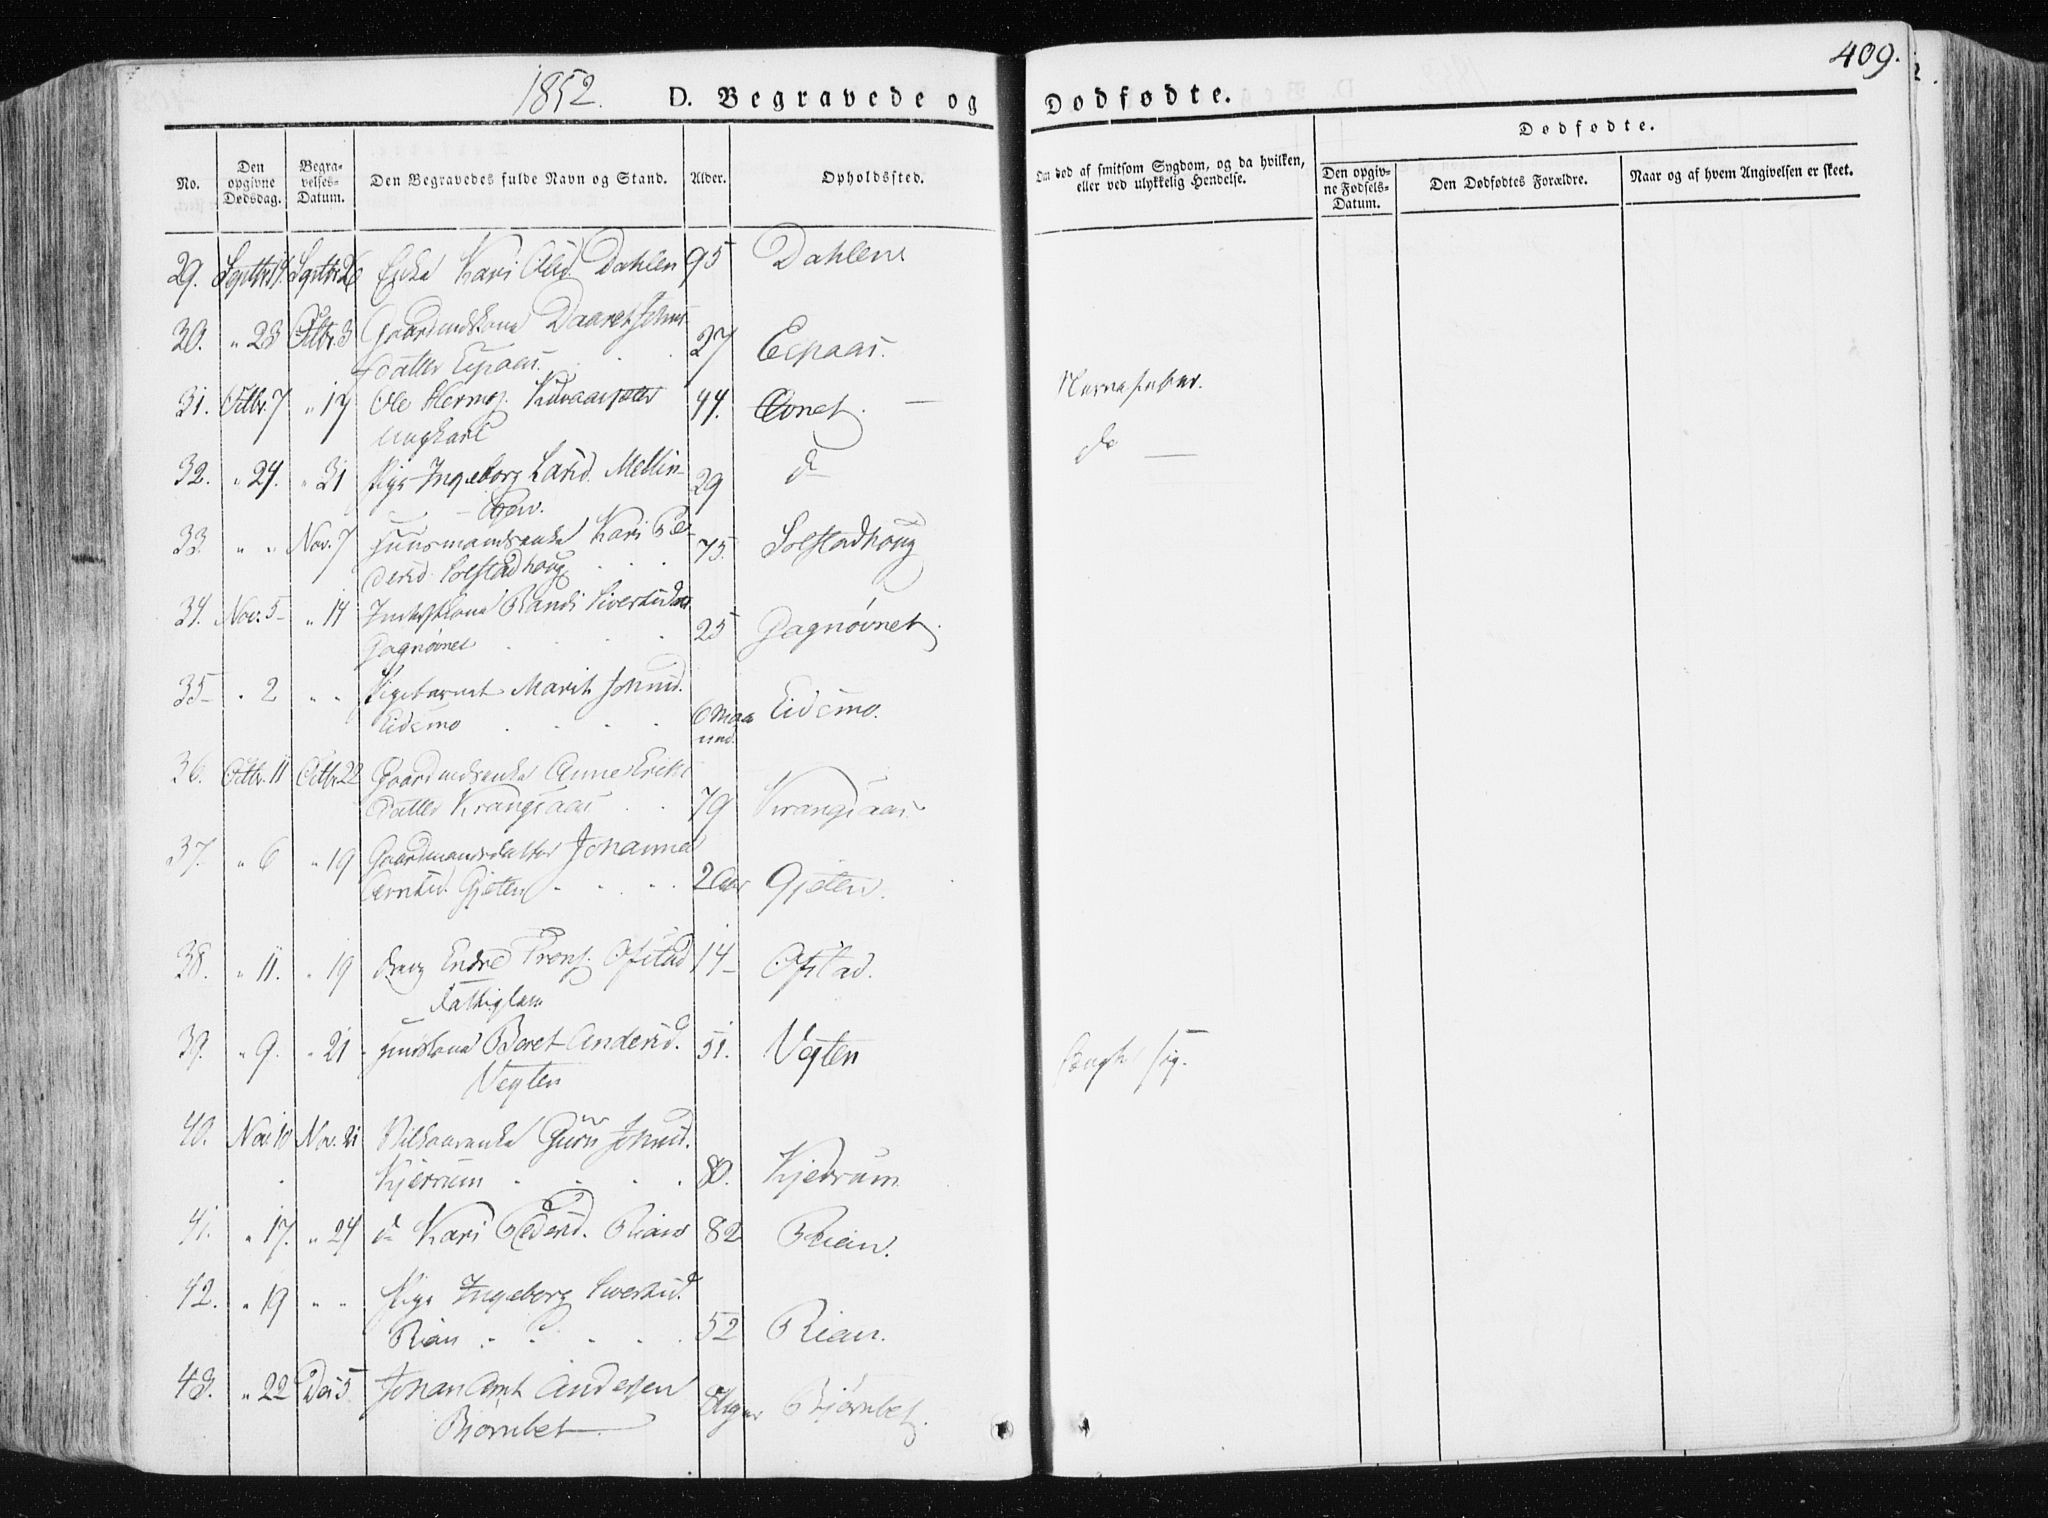 1852.
D. Begravede og Dødfødte.
409.
No.
Den opgivne Dødsdag.
Begravelses-Datum.
Den Begravedes fulde Navn og Stand.
Alder.
Opholdssted.
Om død af smitsom Sygdom, og da hvilken, eller ved ulykkelig Hendelse.
Dødfødte.
Den opgivne Fødsels-Datum.
Den Dødfødtes Forældre.
Naar og af hvem Angivelsen er skeet.
29. Septbr 19. Septbr 26 Enke Kari Olsd. Dahlen 95 Dahlen
30. " 23 Octbr. 3 Gaardmdskone Johns-
datter Espaas. 27 Espaas.
31. Octbr. 7 " 17 Ole
Ungkarl 44. Evnet. —
32. " 24. " 31 Pige Ingeborg Larsd. Mellin-
29 d—
do —
33. " " Nov. 7 Huusmandsenke Kari Pe-
dersd. Solstadhoug 75. Solstadhoug
34. Nov. 5 " 14 Randi Sivertsdtr
Gagnøvnet 25 Gagnøvnet.
35 " 2 " " Pigebarnet Marit Johnsd.
Eidsmo 6 Maa
ned. Eidsmo.
36. Octbr. 11 Octbr. 22 Gaardmdsenke Anne Erichs
datter Krangsaas 79 Krangsaas
37. " 6 " 19 Gaardmandsdatter Johanna
Arntsd. Gjeten 2 Aar Gjeten.
38. " 11. " 19 Dreng Endre Ofstad 14 Ofstad.
39. " 9. " 21 Beret Andersd.
Vegten 51. Vegten
40. Nov. 10 Nov. 21 Vilkaarsenke Guru Johnsd.
Kjerrum 80. Kjerrum
41. " 17. " 24 d— Kari Pedersd. Rian 82 Rian.
42. " 19 " " Pige Ingeborg Sivertsd.
Rian 52 Rian.
43. " 22 Dec 5 Johan Arnt Andersen
Bjørnbet 8 Uger Bjørnbet.